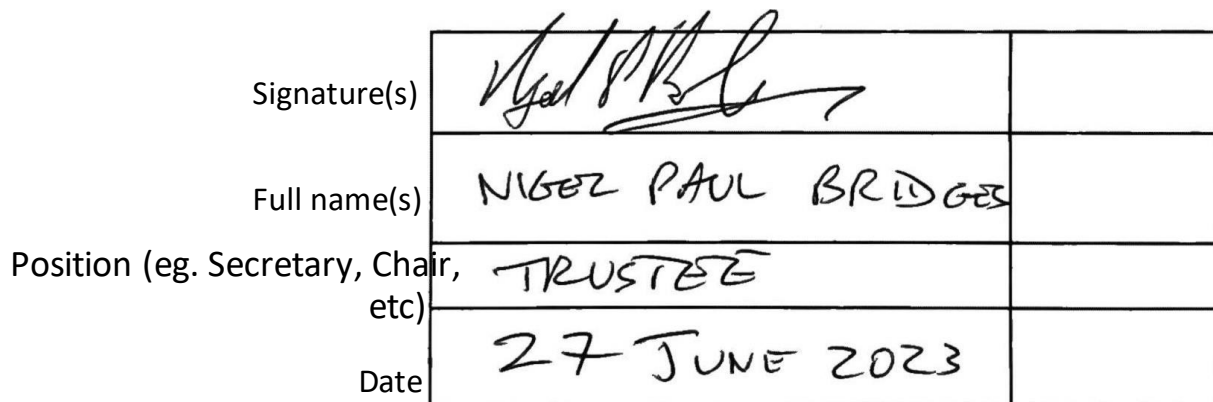 Signature(s)
Full name(s) NIGEL PAUL BRIDGES
Position (eg. Secretary, Chair, etc) TRUSTEE
Date 27 JUNE 2023